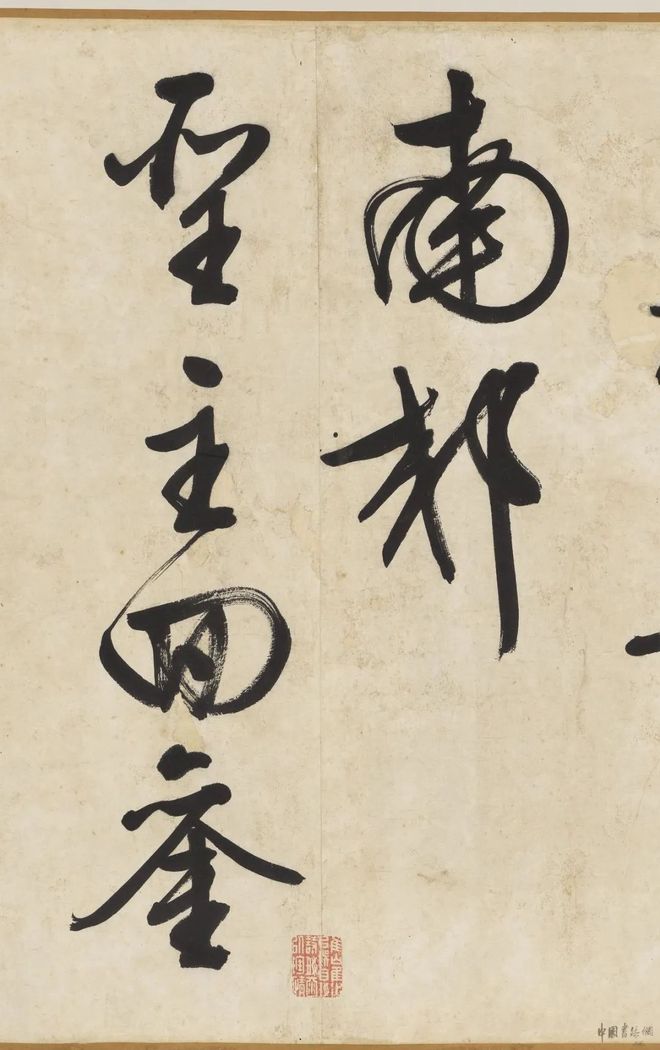 南都
聖主回鑾
中國書法網